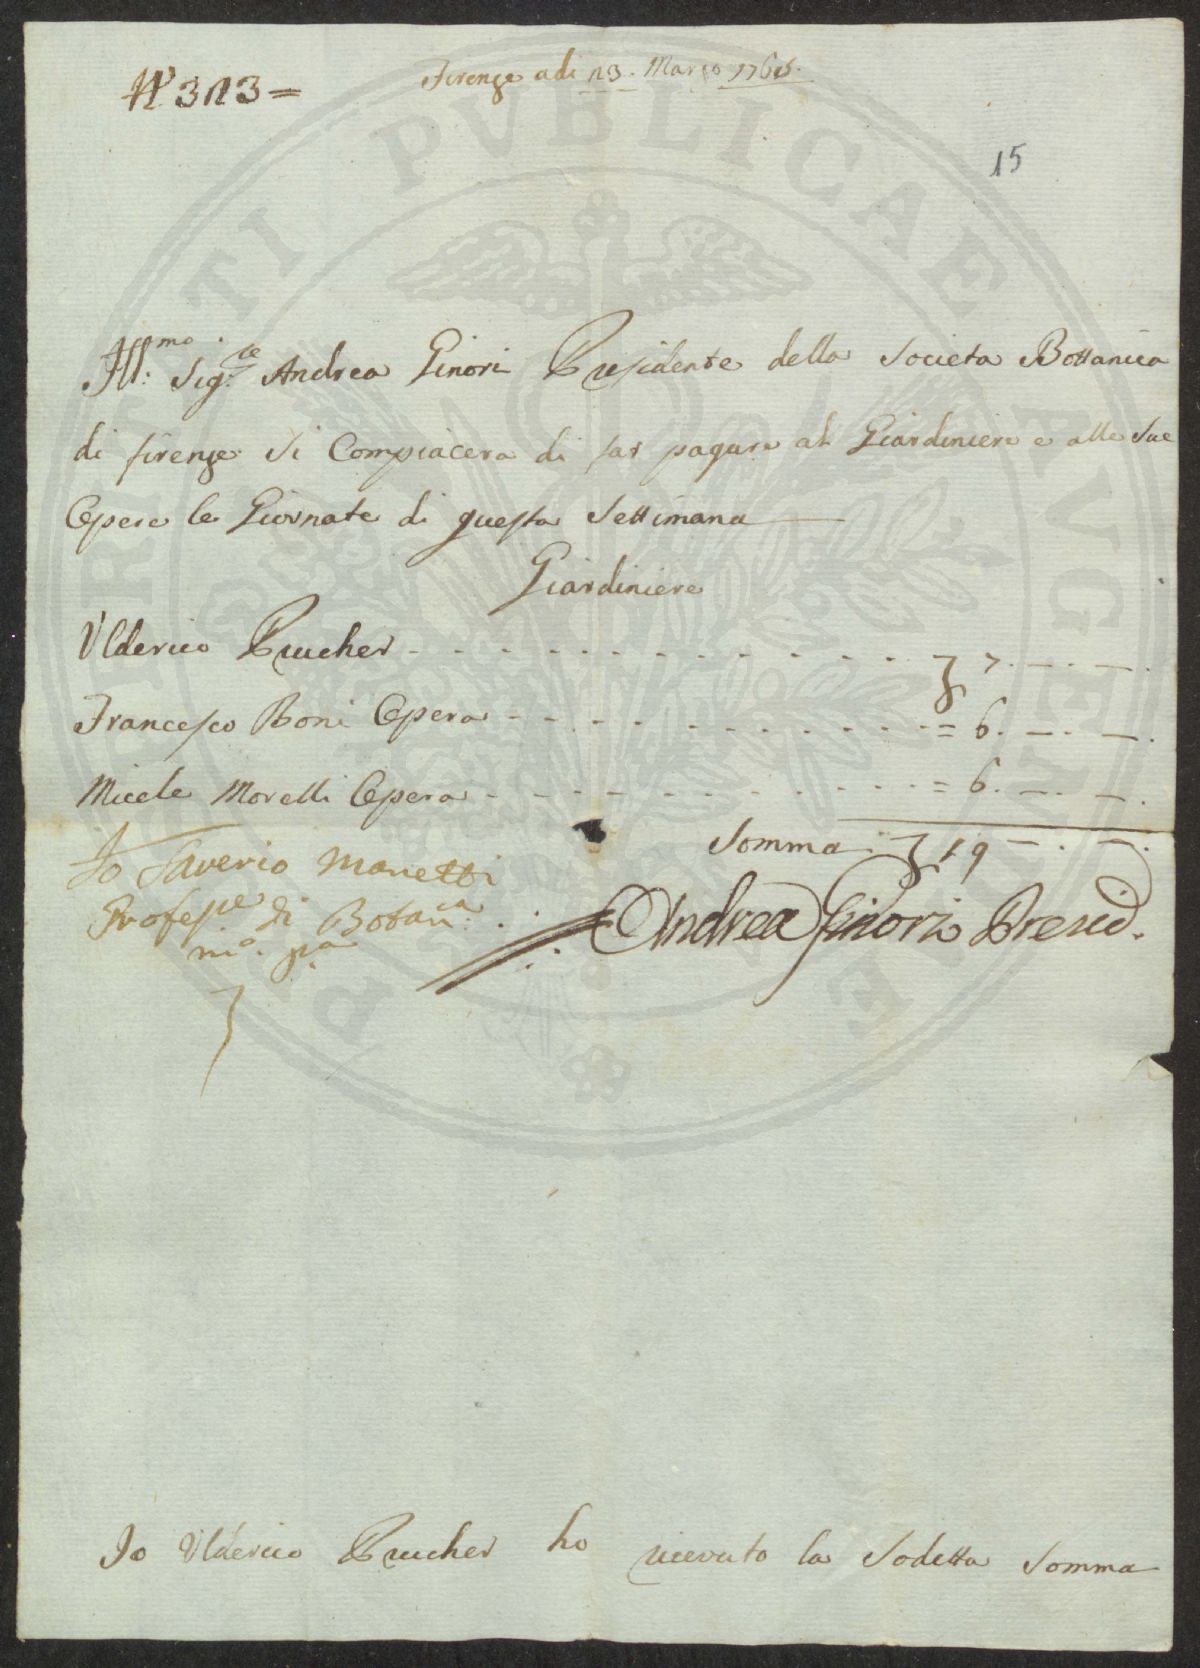 N° 313 =
Firenze adi 13. Marzo 1765.
15
Ill:mo Sig:re Andrea Ginori Presidente della Societa Bottanica
di firenze Si Compiacera di far pagare al Giardiniere e alle Sue
Opere le Giornate di questa Settimana
Giardiniere
Ulderico Prucher - - - - - - - - - - - - - 7. —. —.
Francesco Boni Opera - - - - - - - - - - - = 6. —. —.
Micele Morelli Opera - - - - - - - - - - - = 6. —. —.
Somma 19 —. —.
Io Saverio Manetti
Profess.re di Botan.ca
m.o p.a
Andrea Ginori Presid.
Io Ulderico Prucher ho ricevuto la Sodetta Somma
PERITI PVBLICAE AVGENDAE